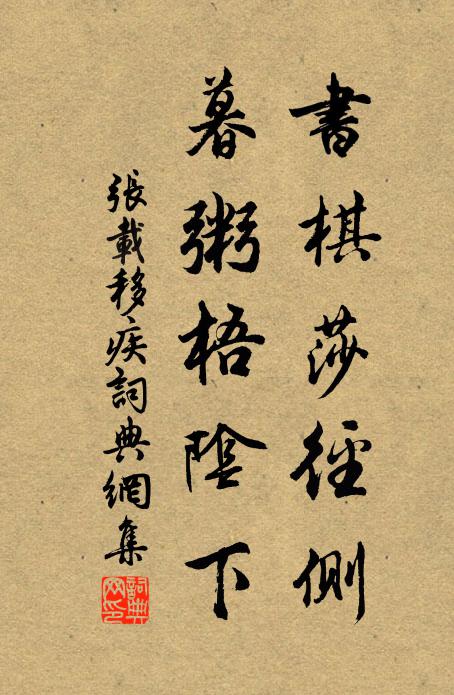 書棋莎徑側
暮粥梧陰下
張載移疾詞典網集
詞典网印